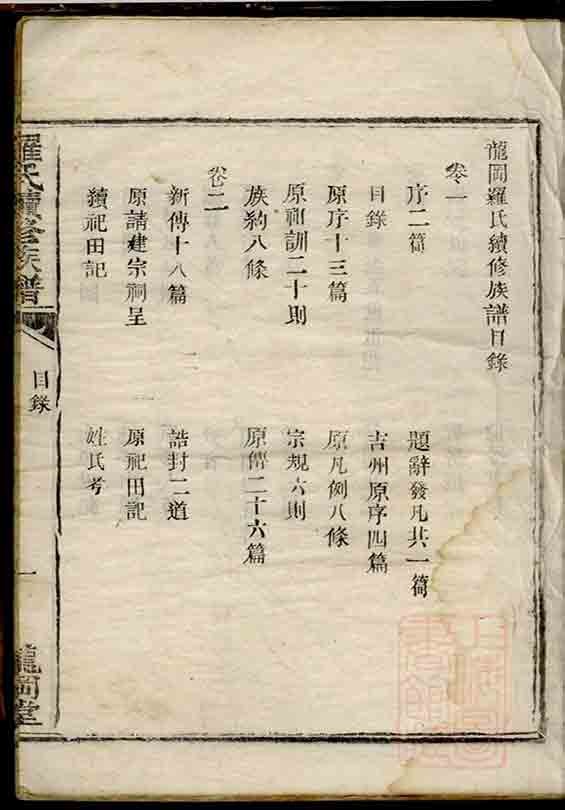 龍岡羅氏續修族譜目錄
卷一
序二篇
題辭發凡共一篇
目錄
吉州原序四篇
原序十三篇
原凡例八條
原祖訓二十則
宗規六則
族約八條
原傳二十六篇
卷二
新傳十八篇
誥封二道
原請建宗祠呈
原祀田記
續祀田記
姓氏考
羅氏續修族譜
目錄
一
龍岡堂
上海圖書館藏